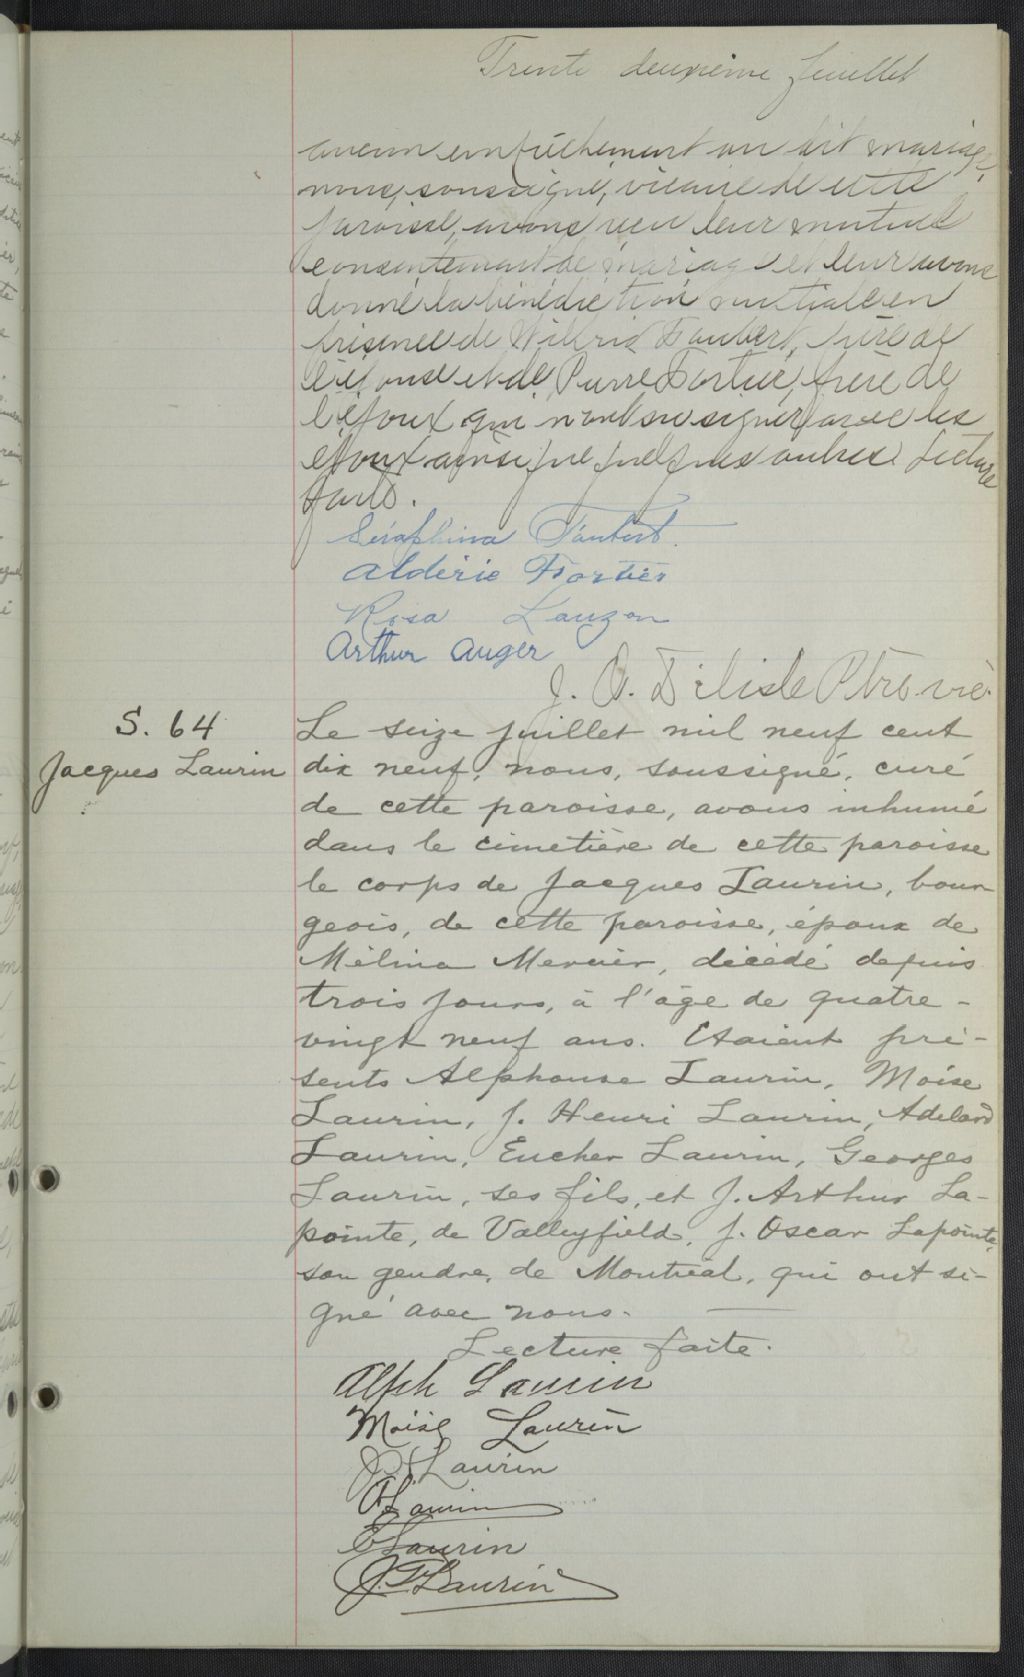 Trente deuxième feuillet
aucun empêchement au dit mariage,
nous, soussigné, vicaire de cette
paroisse, avons reçu leur mutuel
consentement de mariage et leur avons
donné la bénédiction nuptiale en
présence de Wilfrid Faubert, père de
l'épouse et de Pierre Fortier, frère de
l'époux qui n'ont su signer avec les
époux ainsi que quelques autres. Lecture
faite.
Séraphina Faubert.
Aldéric Fortier
Rosa Lauzon
Arthur Auger
J. A. Délisle Ptre vic.
S. 64
Jacques Laurin
Le seize juillet mil neuf cent
dix neuf, nous, soussigné, curé
de cette paroisse, avons inhumé
dans le cimetière de cette paroisse
le corps de Jacques Laurin, bour
geois, de cette paroisse, époux de
Mélina Mercier, décédé depuis
trois jours, à l'âge de quatre-
vingt neuf ans. Etaient pré-
sents Alphonse Laurin, Moïse
Laurin, J. Henri Laurin, Adelard
Laurin, Eucher Laurin, Georges
Laurin, ses fils, et J. Arthur La-
pointe, de Valleyfield, J. Oscar Lapointe,
son gendre, de Montréal, qui ont si-
gné avec nous.
Lecture faite.
Alph Laurin
Moïse Laurin
J H Laurin
A Laurin
E Laurin
J. G. Laurin